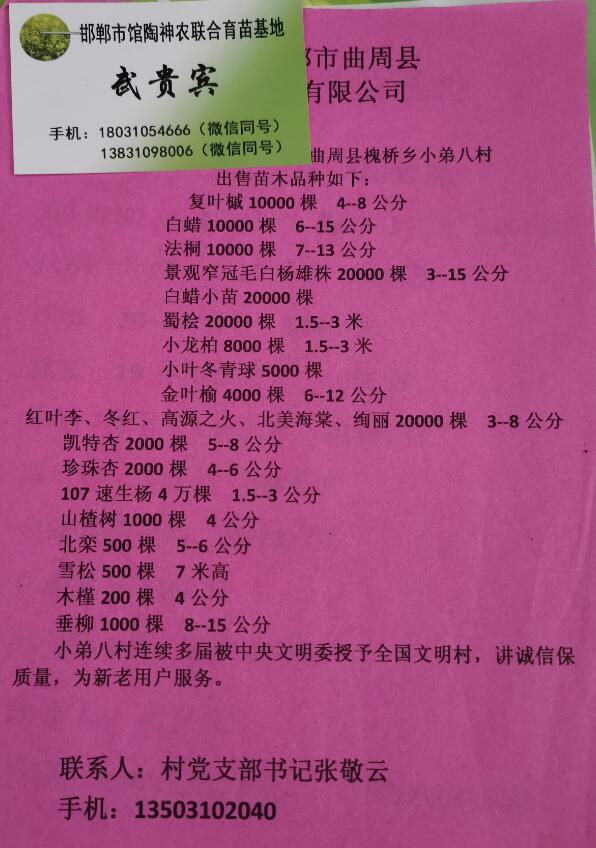 邯郸市馆陶神农联合育苗基地
武贵宾
手机：18031054666（微信同号）
13831098006（微信同号）
市曲周县
有限公司
曲周县槐桥乡小弟八村
出售苗木品种如下：
复叶槭 10000 棵 4--8 公分
白蜡 10000 棵 6--15 公分
法桐 10000 棵 7--13 公分
景观窄冠毛白杨雄株 20000 棵 3--15 公分
白蜡小苗 20000 棵
蜀桧 20000 棵 1.5--3 米
小龙柏 8000 棵 1.5--3 米
小叶冬青球 5000 棵
金叶榆 4000 棵 6--12 公分
红叶李、冬红、高源之火、北美海棠、绚丽 20000 棵 3--8 公分
凯特杏 2000 棵 5--8 公分
珍珠杏 2000 棵 4--6 公分
107 速生杨 4 万棵 1.5--3 公分
山楂树 1000 棵 4 公分
北栾 500 棵 5--6 公分
雪松 500 棵 7 米高
木槿 200 棵 4 公分
垂柳 1000 棵 8--15 公分
小弟八村连续多届被中央文明委授予全国文明村，讲诚信保
质量，为新老用户服务。
联系人：村党支部书记张敬云
手机：13503102040